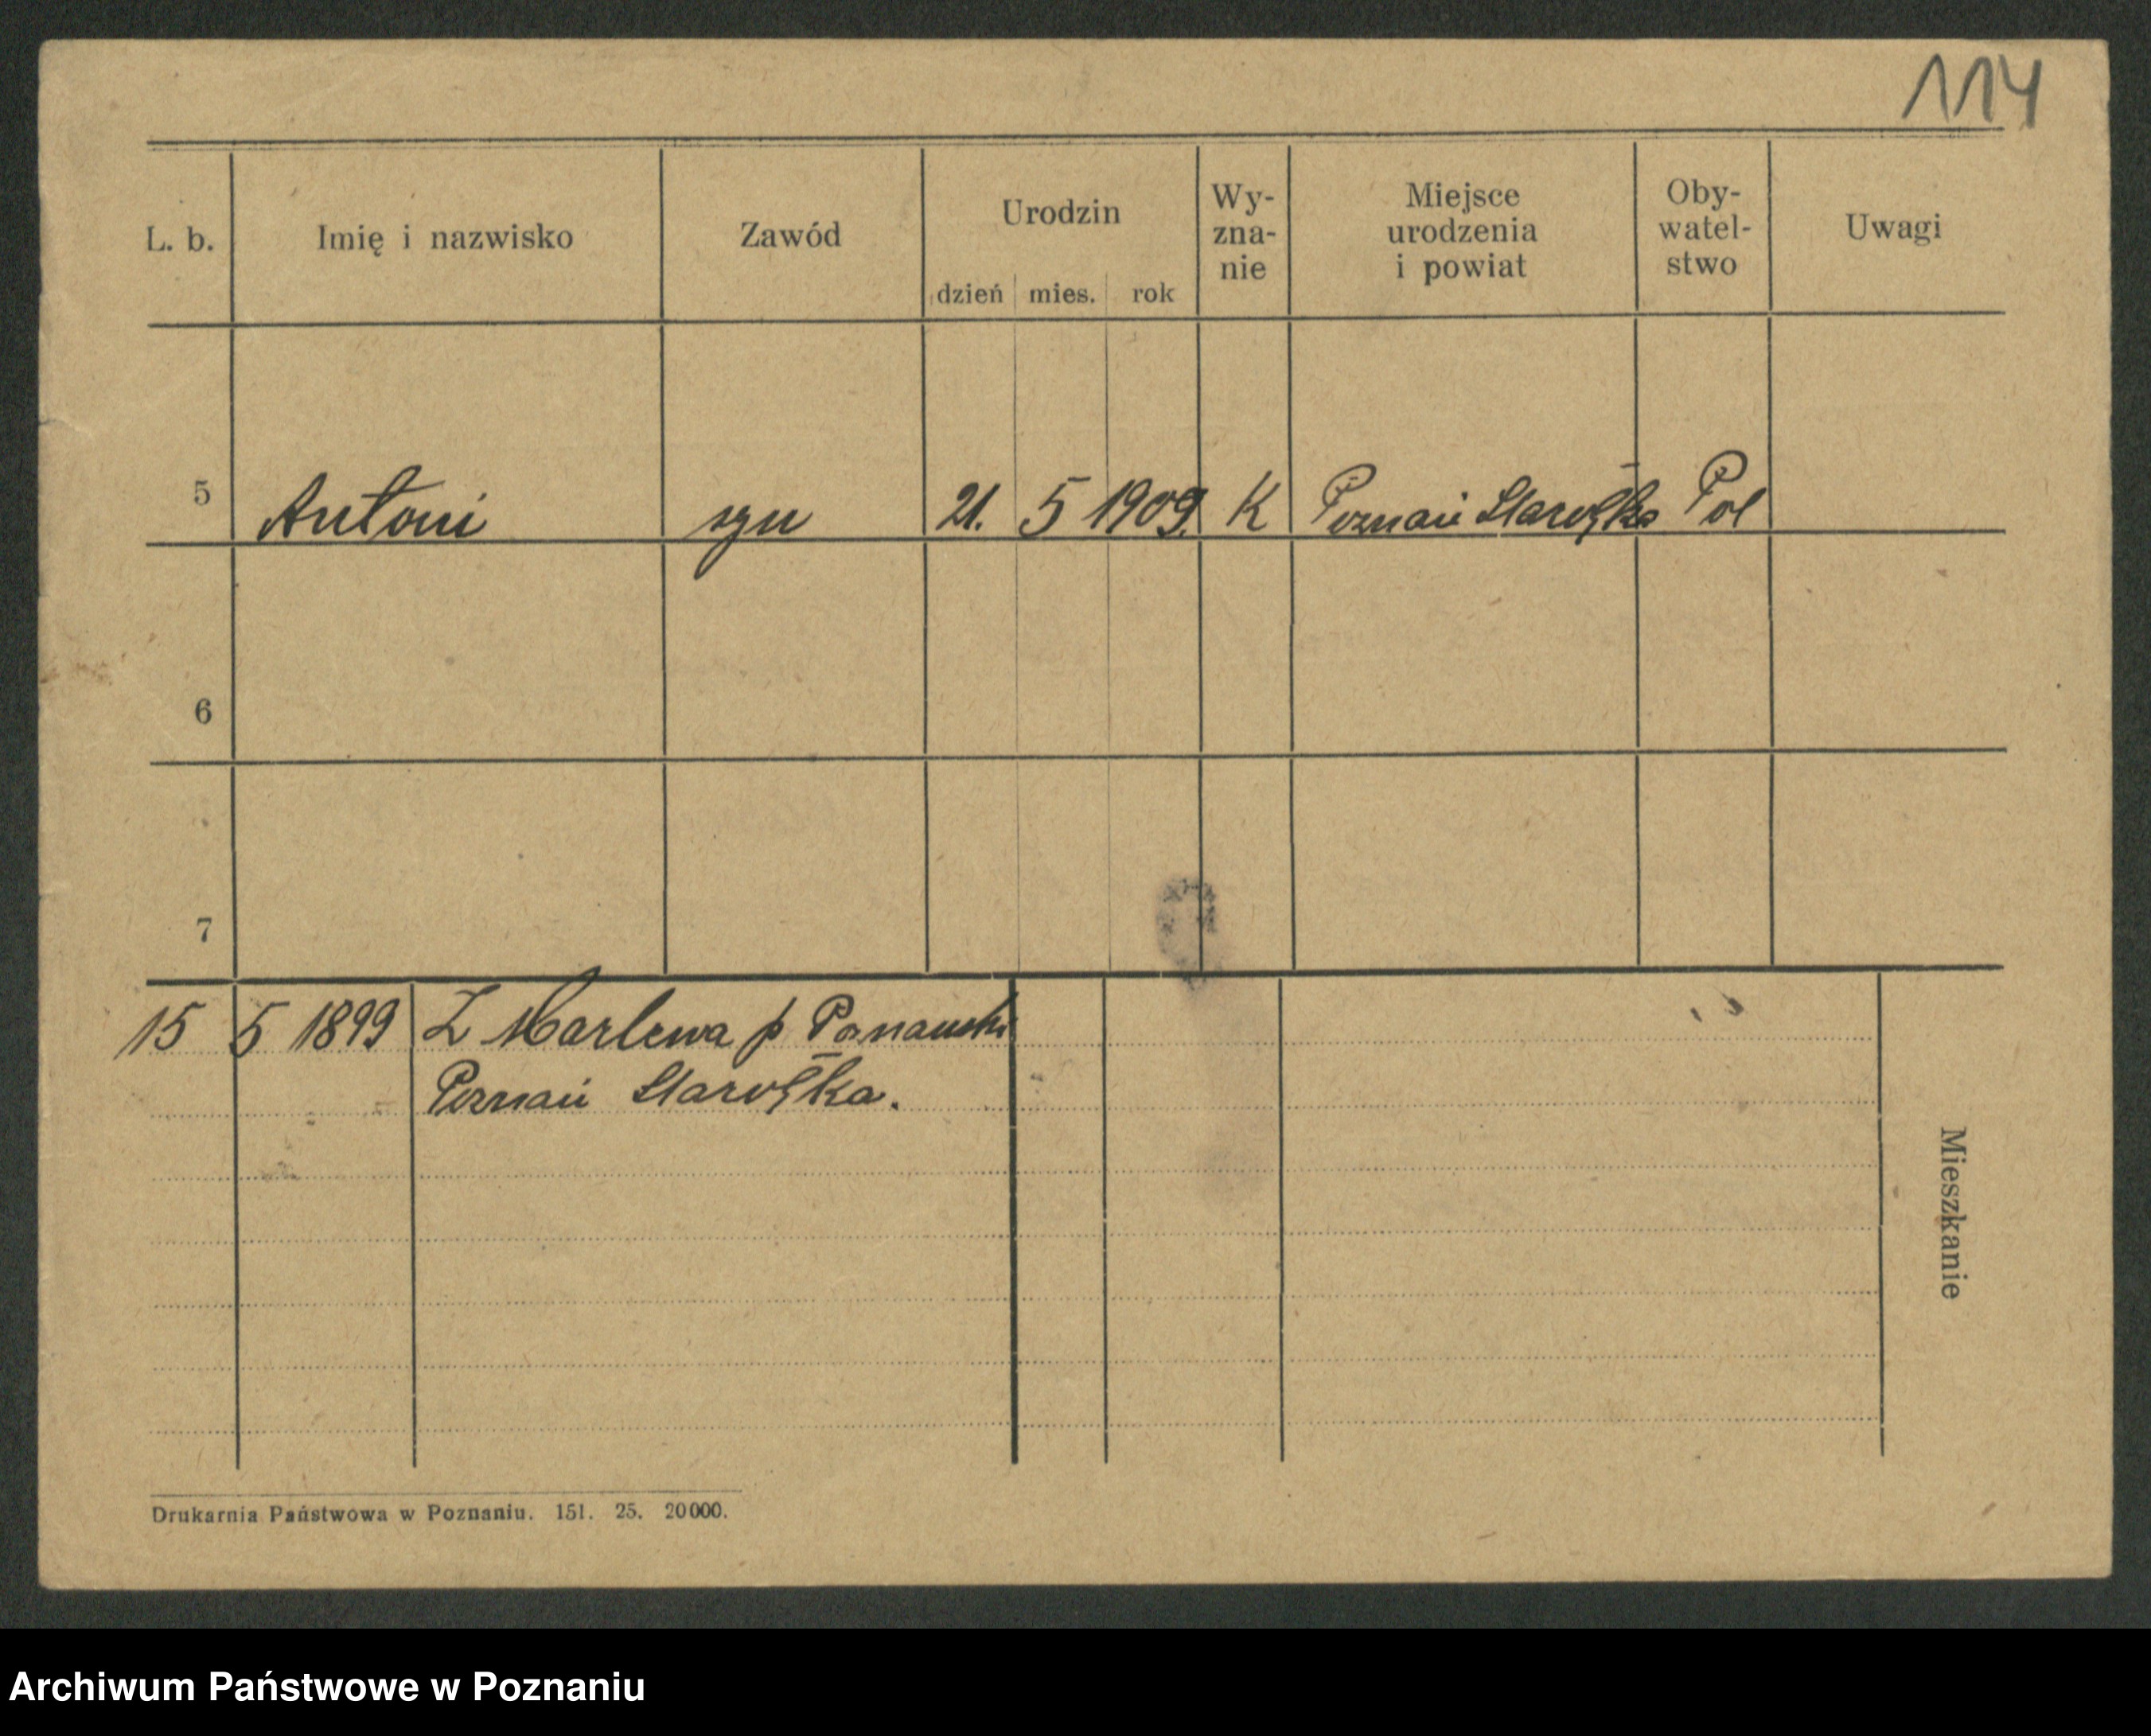 114
L. b. Imię i nazwisko Zawód Urodzin dzień mies. rok Wy-
zna-
nie Miejsce
urodzenia
i powiat Oby-
watel-
stwo Uwagi
5 Antoni syn 21. 5 1909. K Poznań Starołęka Pol
6
7
15 5 1899 Z Marlewa p Poznański
Poznań Starołęka.
Mieszkanie
Drukarnia Państwowa w Poznaniu. 151. 25. 20000.
Archiwum Państwowe w Poznaniu